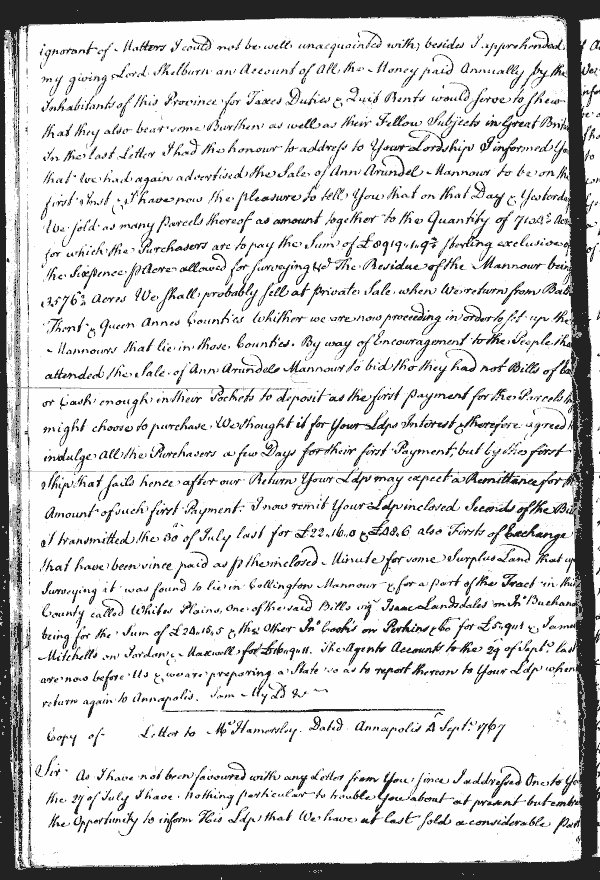 ignorant of Matters I could not be well unacquainted with; besides I apprehended
my giving Lord Shelburn an Account of All the Money paid Annually by the
Inhabitants of this Province for Taxes Duties & Quit Rents would serve to shew
that they also bear some Burthen as well as their Fellow Subjects in Great Britn
In the last Letter I had the honour to address to Your Lordship I informed You
that We had again advertised the Sale of Ann Arundel Mannour to be on the
first Inst & I have now the pleasure to tell You that on that Day & Yesterday
We sold as many Parcels thereof as amount together to the Quantity of Acres
for which the Purchasers are to pay the Sum of sterling exclusive of
the Sixpence p Acre allowed for surveying &c The Residue of the Mannour being
Acres We shall probably sell at Private Sale when We return from Balt
& Queen Annes Counties Whither we are now proceeding in order to set up the
Mannours that lie in those Counties. By way of Encouragement to the People that
attended the Sale of Ann Arundels Mannour to bid tho they had not Bills of
or Cash enough in their Pockets to deposit as the first Payment for the Parcels they
might choose to purchase We thought it for Your Ldps Interest & therefore agreed to
indulge All the Purchasers a few Days for their first Payment, but by the first
Ship that sails hence after our Return Your Ldp may expect a Remittance for the
Amount of such first Payment. I now remit Your Ldp inclosed Seconds of the Bills
I transmitted the 30th of July last for £22.16.0 & £48.6 also Firsts of Exchange
that have been since paid as p the inclosed Minute for some Surplus Land that up
Surveying it was found to lie in Collington Mannour & for a part of the Tract in this
County called Whites Plains, One of the said Bills viz Isaac Landsdales on Jno Buchanan
being for the Sum of £24.16.5 & the Other Jno Cooks on Perkins & Co for & James
Mitchells on Jordan & Maxwell for The Agents Accounts to the 29 of Septr last
are now before Us & we are preparing a State so as to report thereon to Your Ldp when
return again to Annapolis. I am My Ld &c
Copy of Letter to Mr Hamersley Dated Annapolis 4 Septr 1767
Sir As I have not been favoured with any Letter from You since I addressed One to You
the 27 of July I have nothing particular to trouble You about at present but embrace
the Opportunity to inform His Ldp that We have at last sold a considerable Part